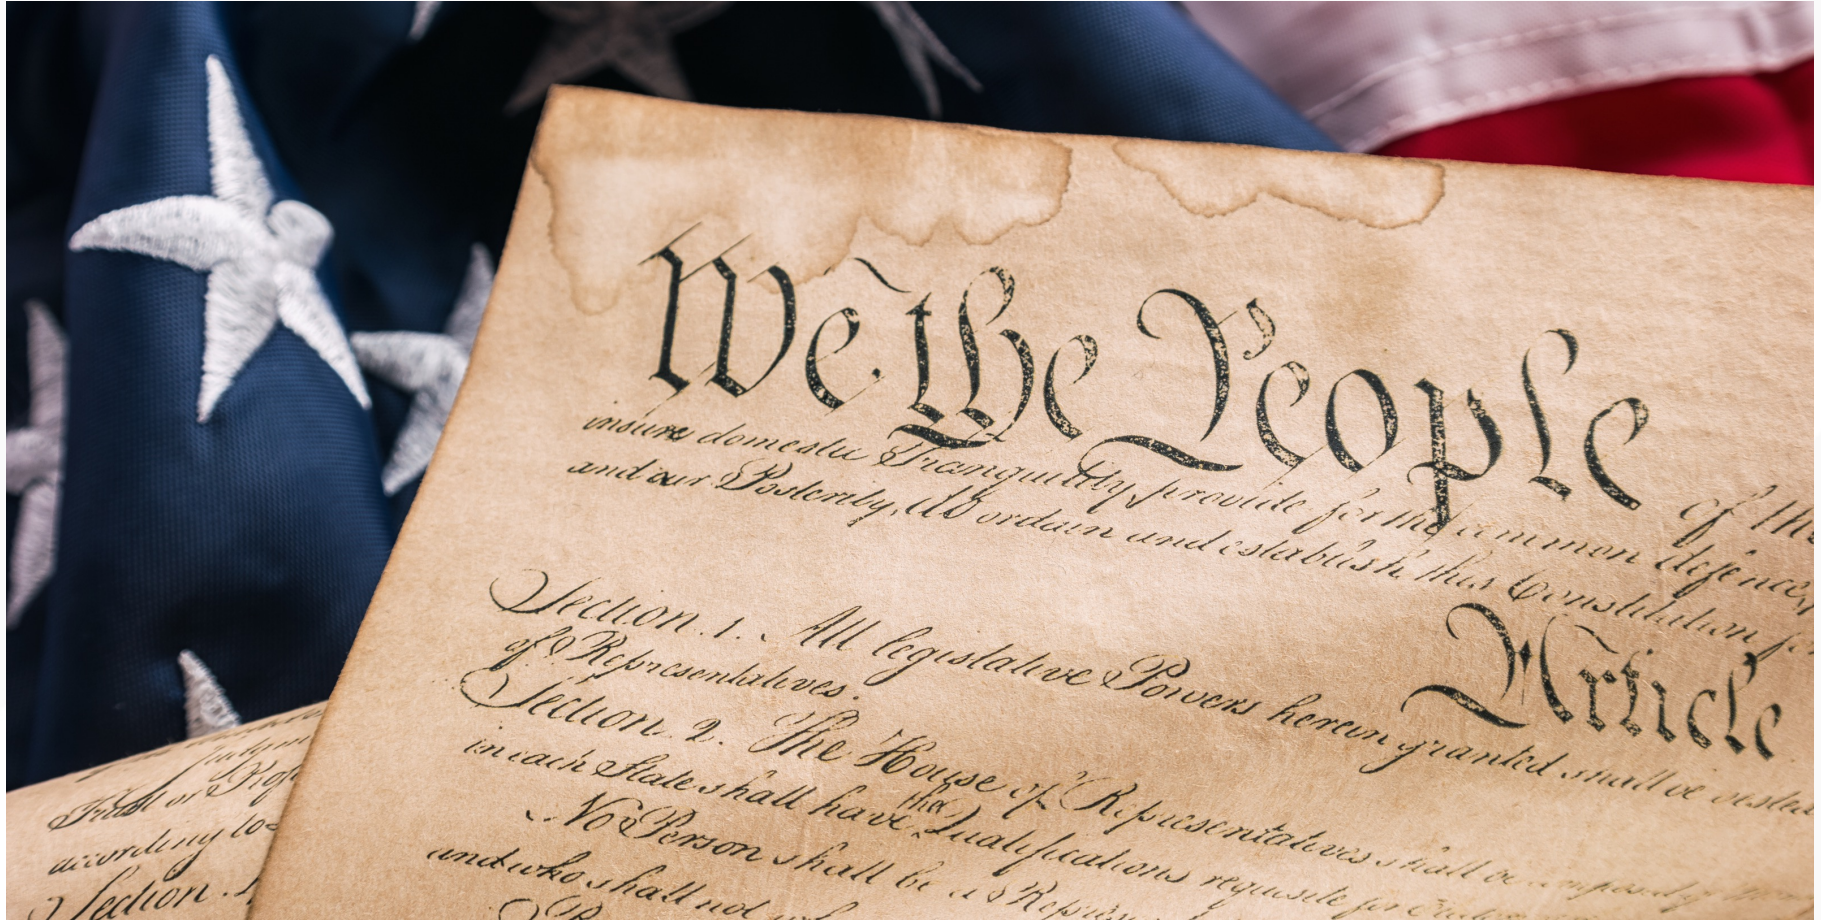 We the People of the
insure domestic Tranquility, provide for the common defence,
and our Posterity, do ordain and establish this Constitution for
Article
Section. 1. All legislative Powers herein granted shall be vested
of Representatives.
Section. 2. The House of Representatives shall be composed of
in each State shall have the Qualifications requisite for
No Person shall be a Repres
and who shall not
Trust or Prof
according to
Section. 4